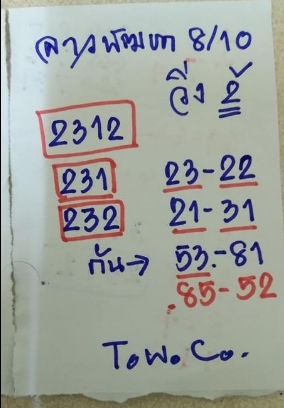 ลาวพัฒนา 8/10
วิ่ง 2
2312
231 23-22
232 21-31
กัน→ 53.-81
.85-52
T.w.o.Co.